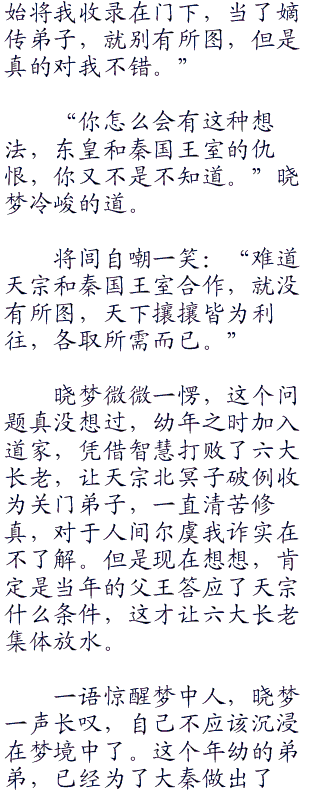 始将我收录在门下，当了嫡
传弟子，就别有所图，但是
真的对我不错。”
“你怎么会有这种想
法，东皇和秦国王室的仇
恨，你又不是不知道。”晓
梦冷峻的道。
将闾自嘲一笑：“难道
天宗和秦国王室合作，就没
有所图，天下攘攘皆为利
往，各取所需而已。”
晓梦微微一愣，这个问
题真没想过，幼年之时加入
道家，凭借智慧打败了六大
长老，让天宗北冥子破例收
为关门弟子，一直清苦修
真，对于人间尔虞我诈实在
不了解。但是现在想想，肯
定是当年的父王答应了天宗
什么条件，这才让六大长老
集体放水。
一语惊醒梦中人，晓梦
一声长叹，自己不应该沉浸
在梦境中了。这个年幼的弟
弟，已经为了大秦做出了